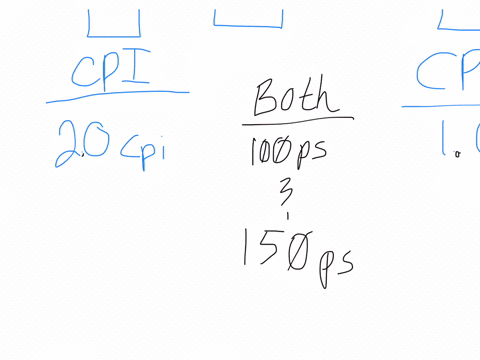 CPI
2.0 cpi
Both
100ps
150ps
CP
1.0